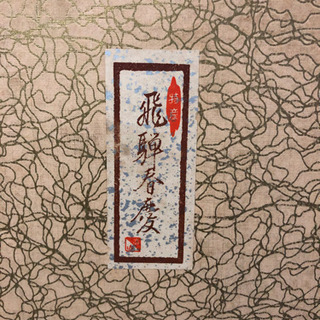 特産
飛騨春慶